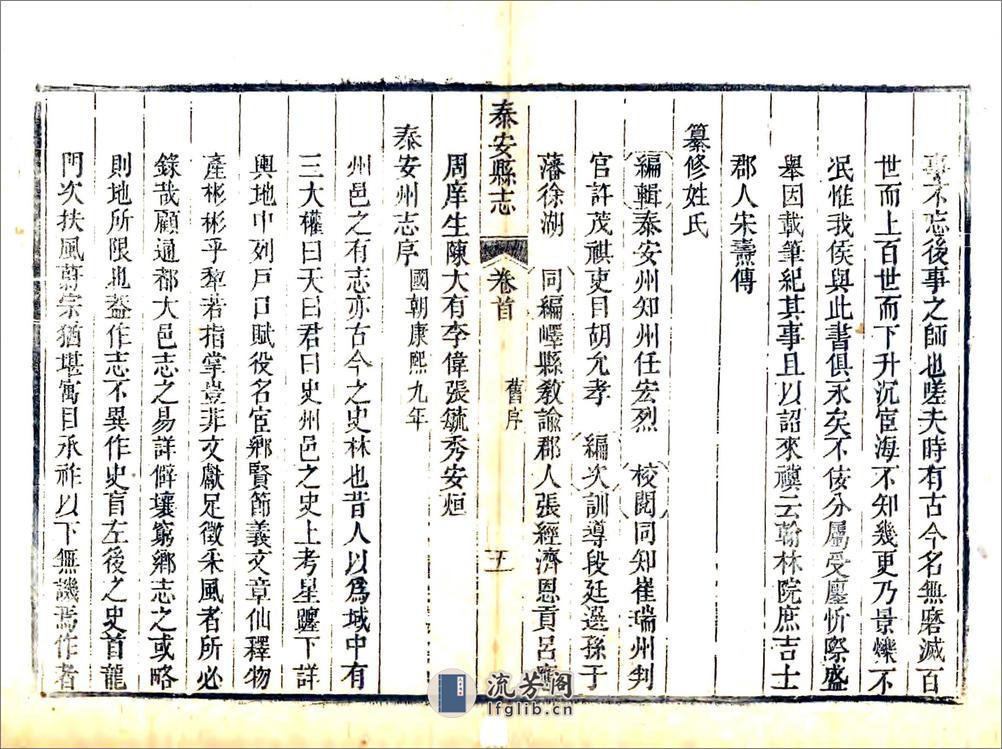 事不忘後事之師也嗟夫時有古今名無磨滅百
世而上百世而下升沉宦海不知幾更乃景爍不
泯惟我侯與此書俱永矣不佞分屬受廛忻際盛
舉因載筆紀其事且以詔來禩云翰林院庶吉士
郡人宋燾傳
纂修姓氏
編輯泰安州知州任宏烈 校閱同知崔瑞州判
官許茂麒吏目胡允孝 編次訓導段廷選孫于
藩徐湖 同編嶧縣教諭郡人張經濟恩貢呂
周庠生陳大有李偉張毓秀安烜
泰安縣志 卷首 舊序 五
泰安州志序 國朝康熙九年
州邑之有志亦古今之史林也昔人以為域中有
三大權曰天曰君曰史州邑之史上考星躔下詳
輿地中列戶口賦役名宦鄉賢節義文章仙釋物
產彬彬乎犁若指掌豈非文獻足徵采風者所必
錄哉顧通都大邑志之易詳僻壤窮鄉志之或略
則地所限也蓋作志不異作史盲左後之史首龍
門次扶風蔚宗猶堪寓目承祚以下無譏焉作者
流芳阁
lfglib.cn